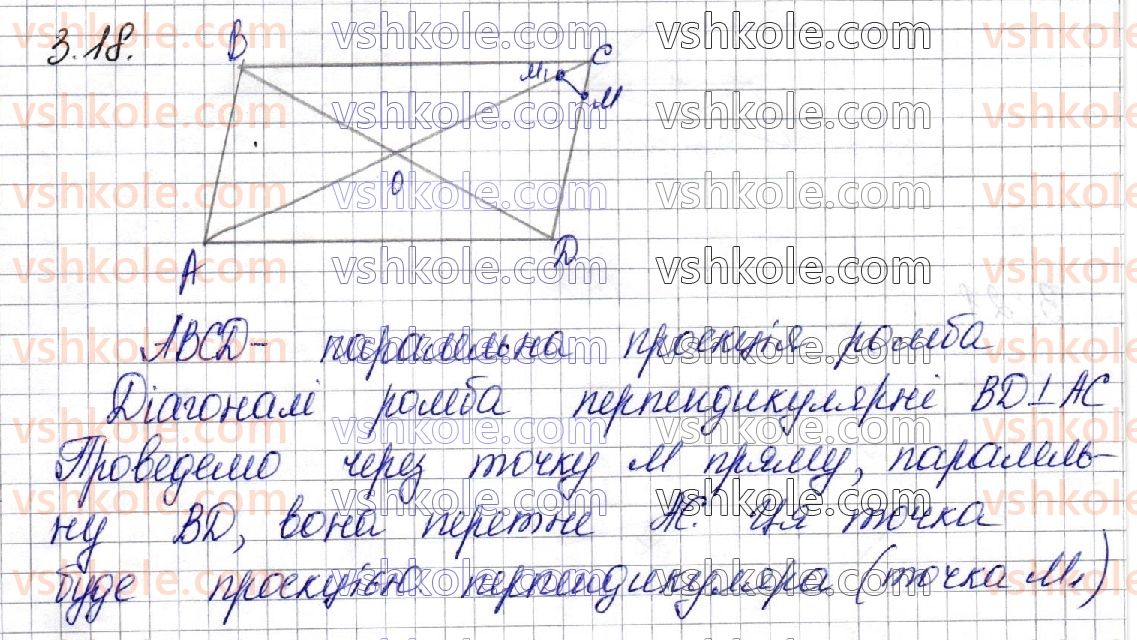 3.18.
B
C
M₁
M
O
A
D
ABCD - паралельна проекція ромба
Діагоналі ромба перпендикулярні BD⊥AC
Проведемо через точку M пряму, паралель-
ну BD, вона перетне AC. Ця точка
буде проекцією перпендикуляра (точка M₁)
vshkole.com